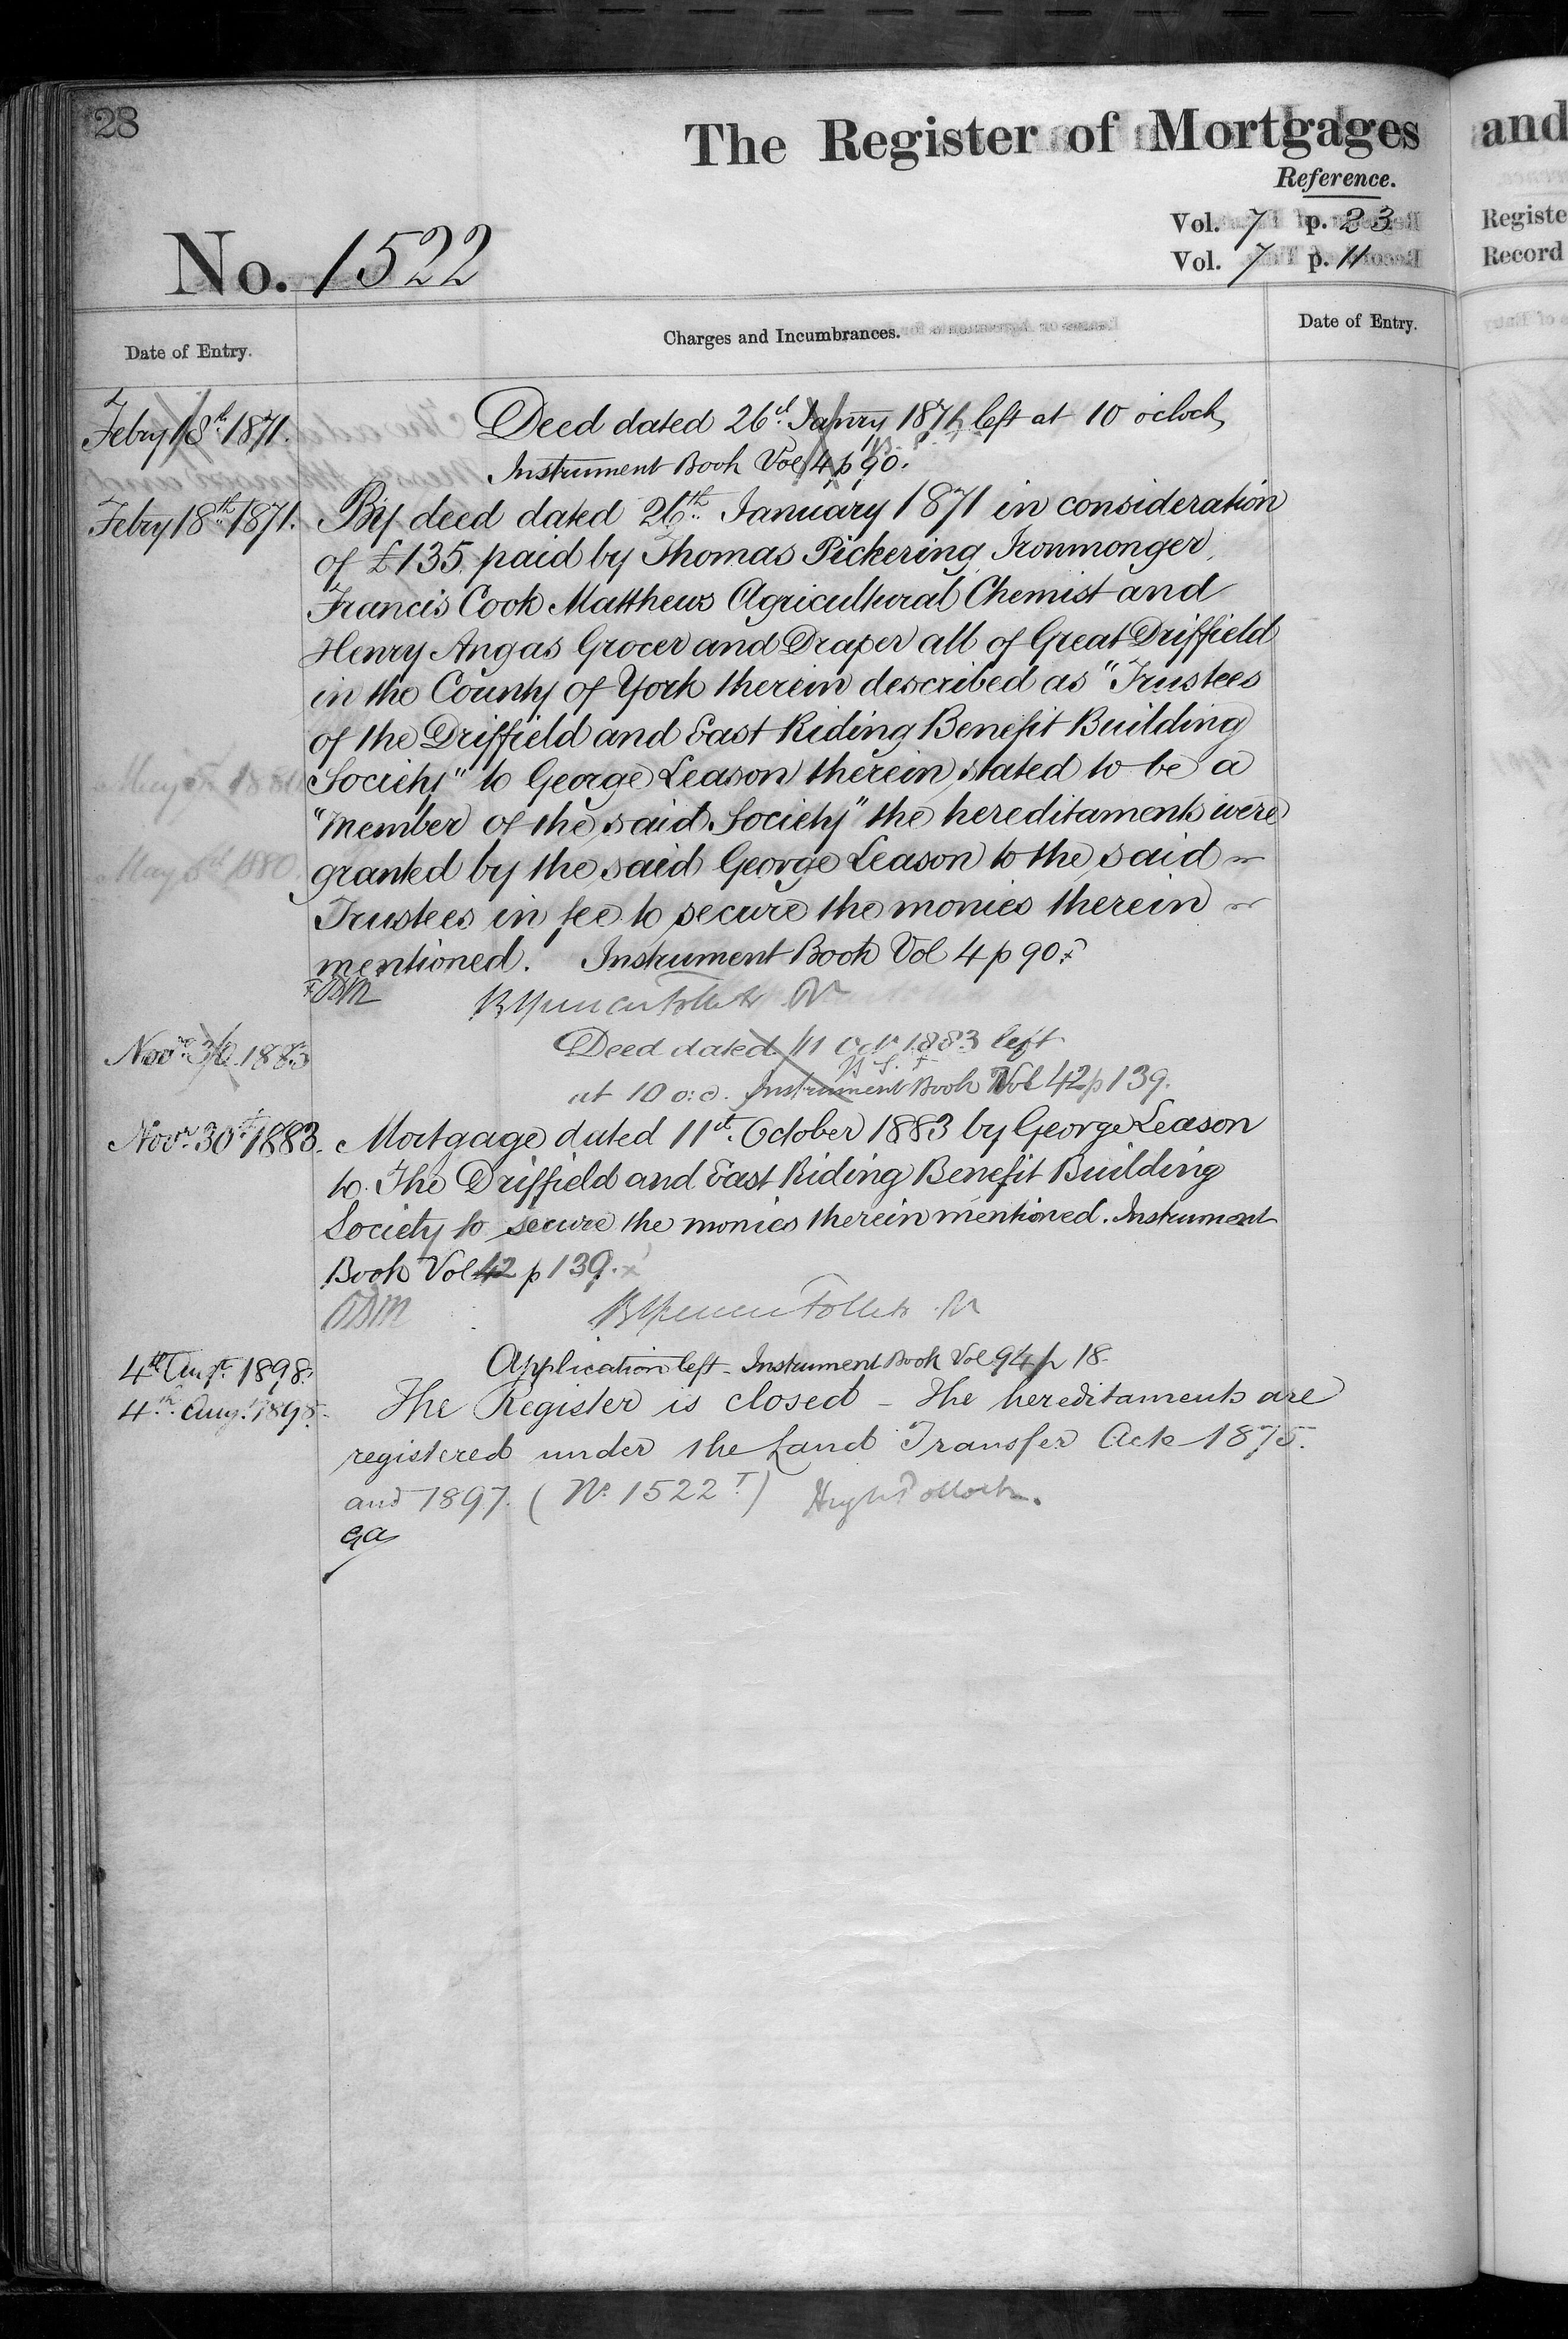 28
The Register of Mortgages and
Reference.
Vol. 7 p. 23 Registe
No. 1522
Vol. 7 p. 11 Record
Date of Entry. Charges and Incumbrances. Date of Entry.
Febry 18th 1871. Deed dated 26th Janry 1871 left at 10 o'clock
Instrument Book Vol 4 p 90.
Febry 18th 1871. By deed dated 26th January 1871 in consideration
of £135 paid by Thomas Pickering Ironmonger,
Francis Cook Matthews Agricultural Chemist and
Henry Angas Grocer and Draper all of Great Driffield
in the County of York therein described as "Trustees
of the Driffield and East Riding Benefit Building
Society" to George Leason therein stated to be a
"member of the said Society" the hereditaments were
granted by the said George Leason to the said
Trustees in fee to secure the monies therein
mentioned. Instrument Book Vol 4 p 90.
Novr 30 1883 Deed dated 11 Octr 1883 left
at 10 o.c. Instrument Book Vol 42 p 139.
Novr 30th 1883. Mortgage dated 11th October 1883 by George Leason
to The Driffield and East Riding Benefit Building
Society to secure the monies therein mentioned. Instrument
Book Vol 42 p 139.
4th Augt 1898. Application left - Instrument Book Vol 94 p 18.
4th Augt 1898. The Register is closed - The hereditaments are
registered under the Land Transfer Acts 1875
and 1897. (No 1522 T) Hugh Pollock.